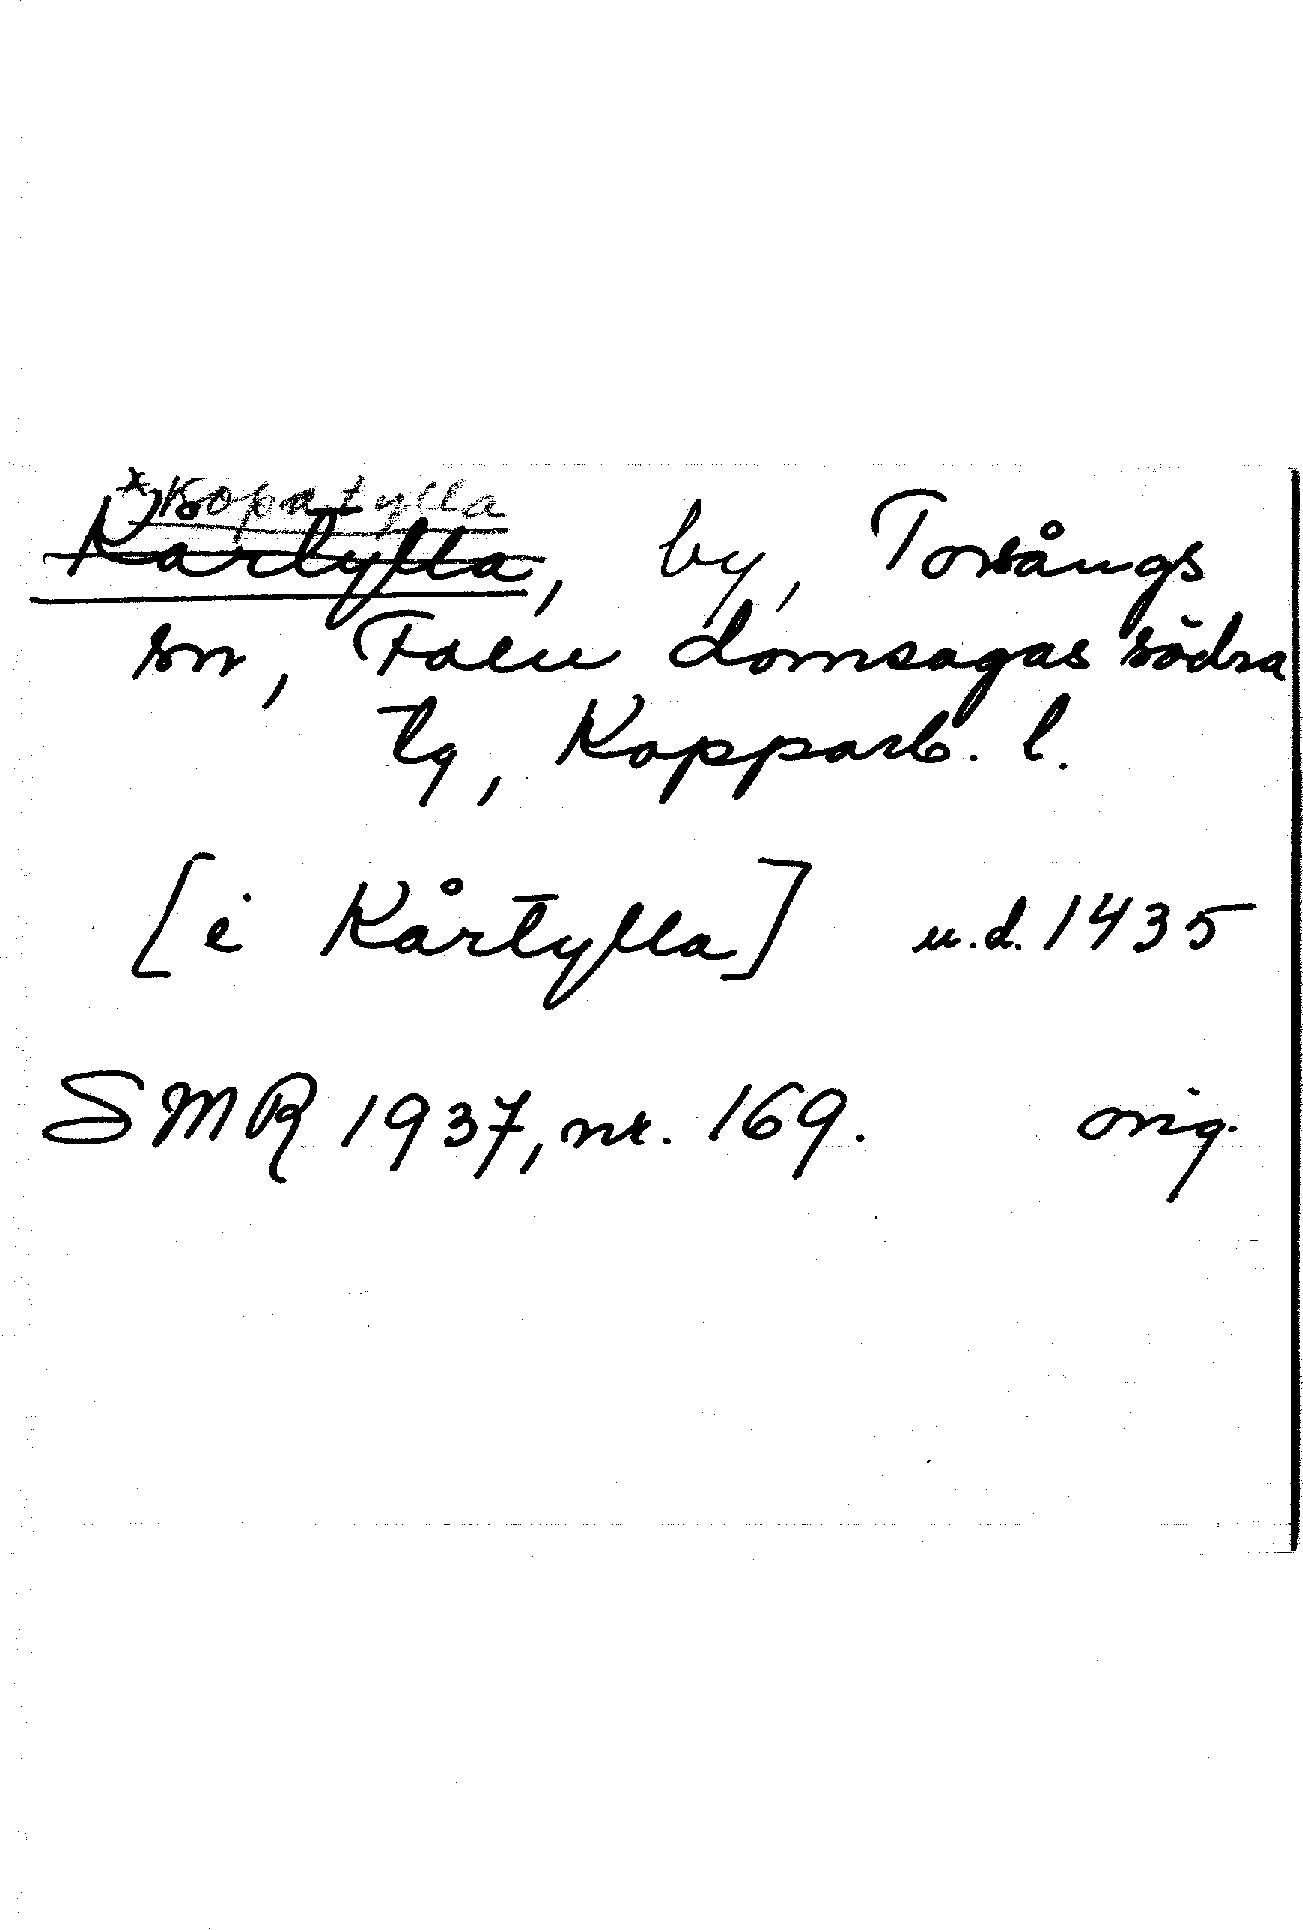 *Kopatylla
Kartylla, by, Torsångs
sn, Falu domsagas södra
tg, Kopparb. l.
[i Kårtylla] u.d. 1435
SMR 1937, nr. 169. orig.